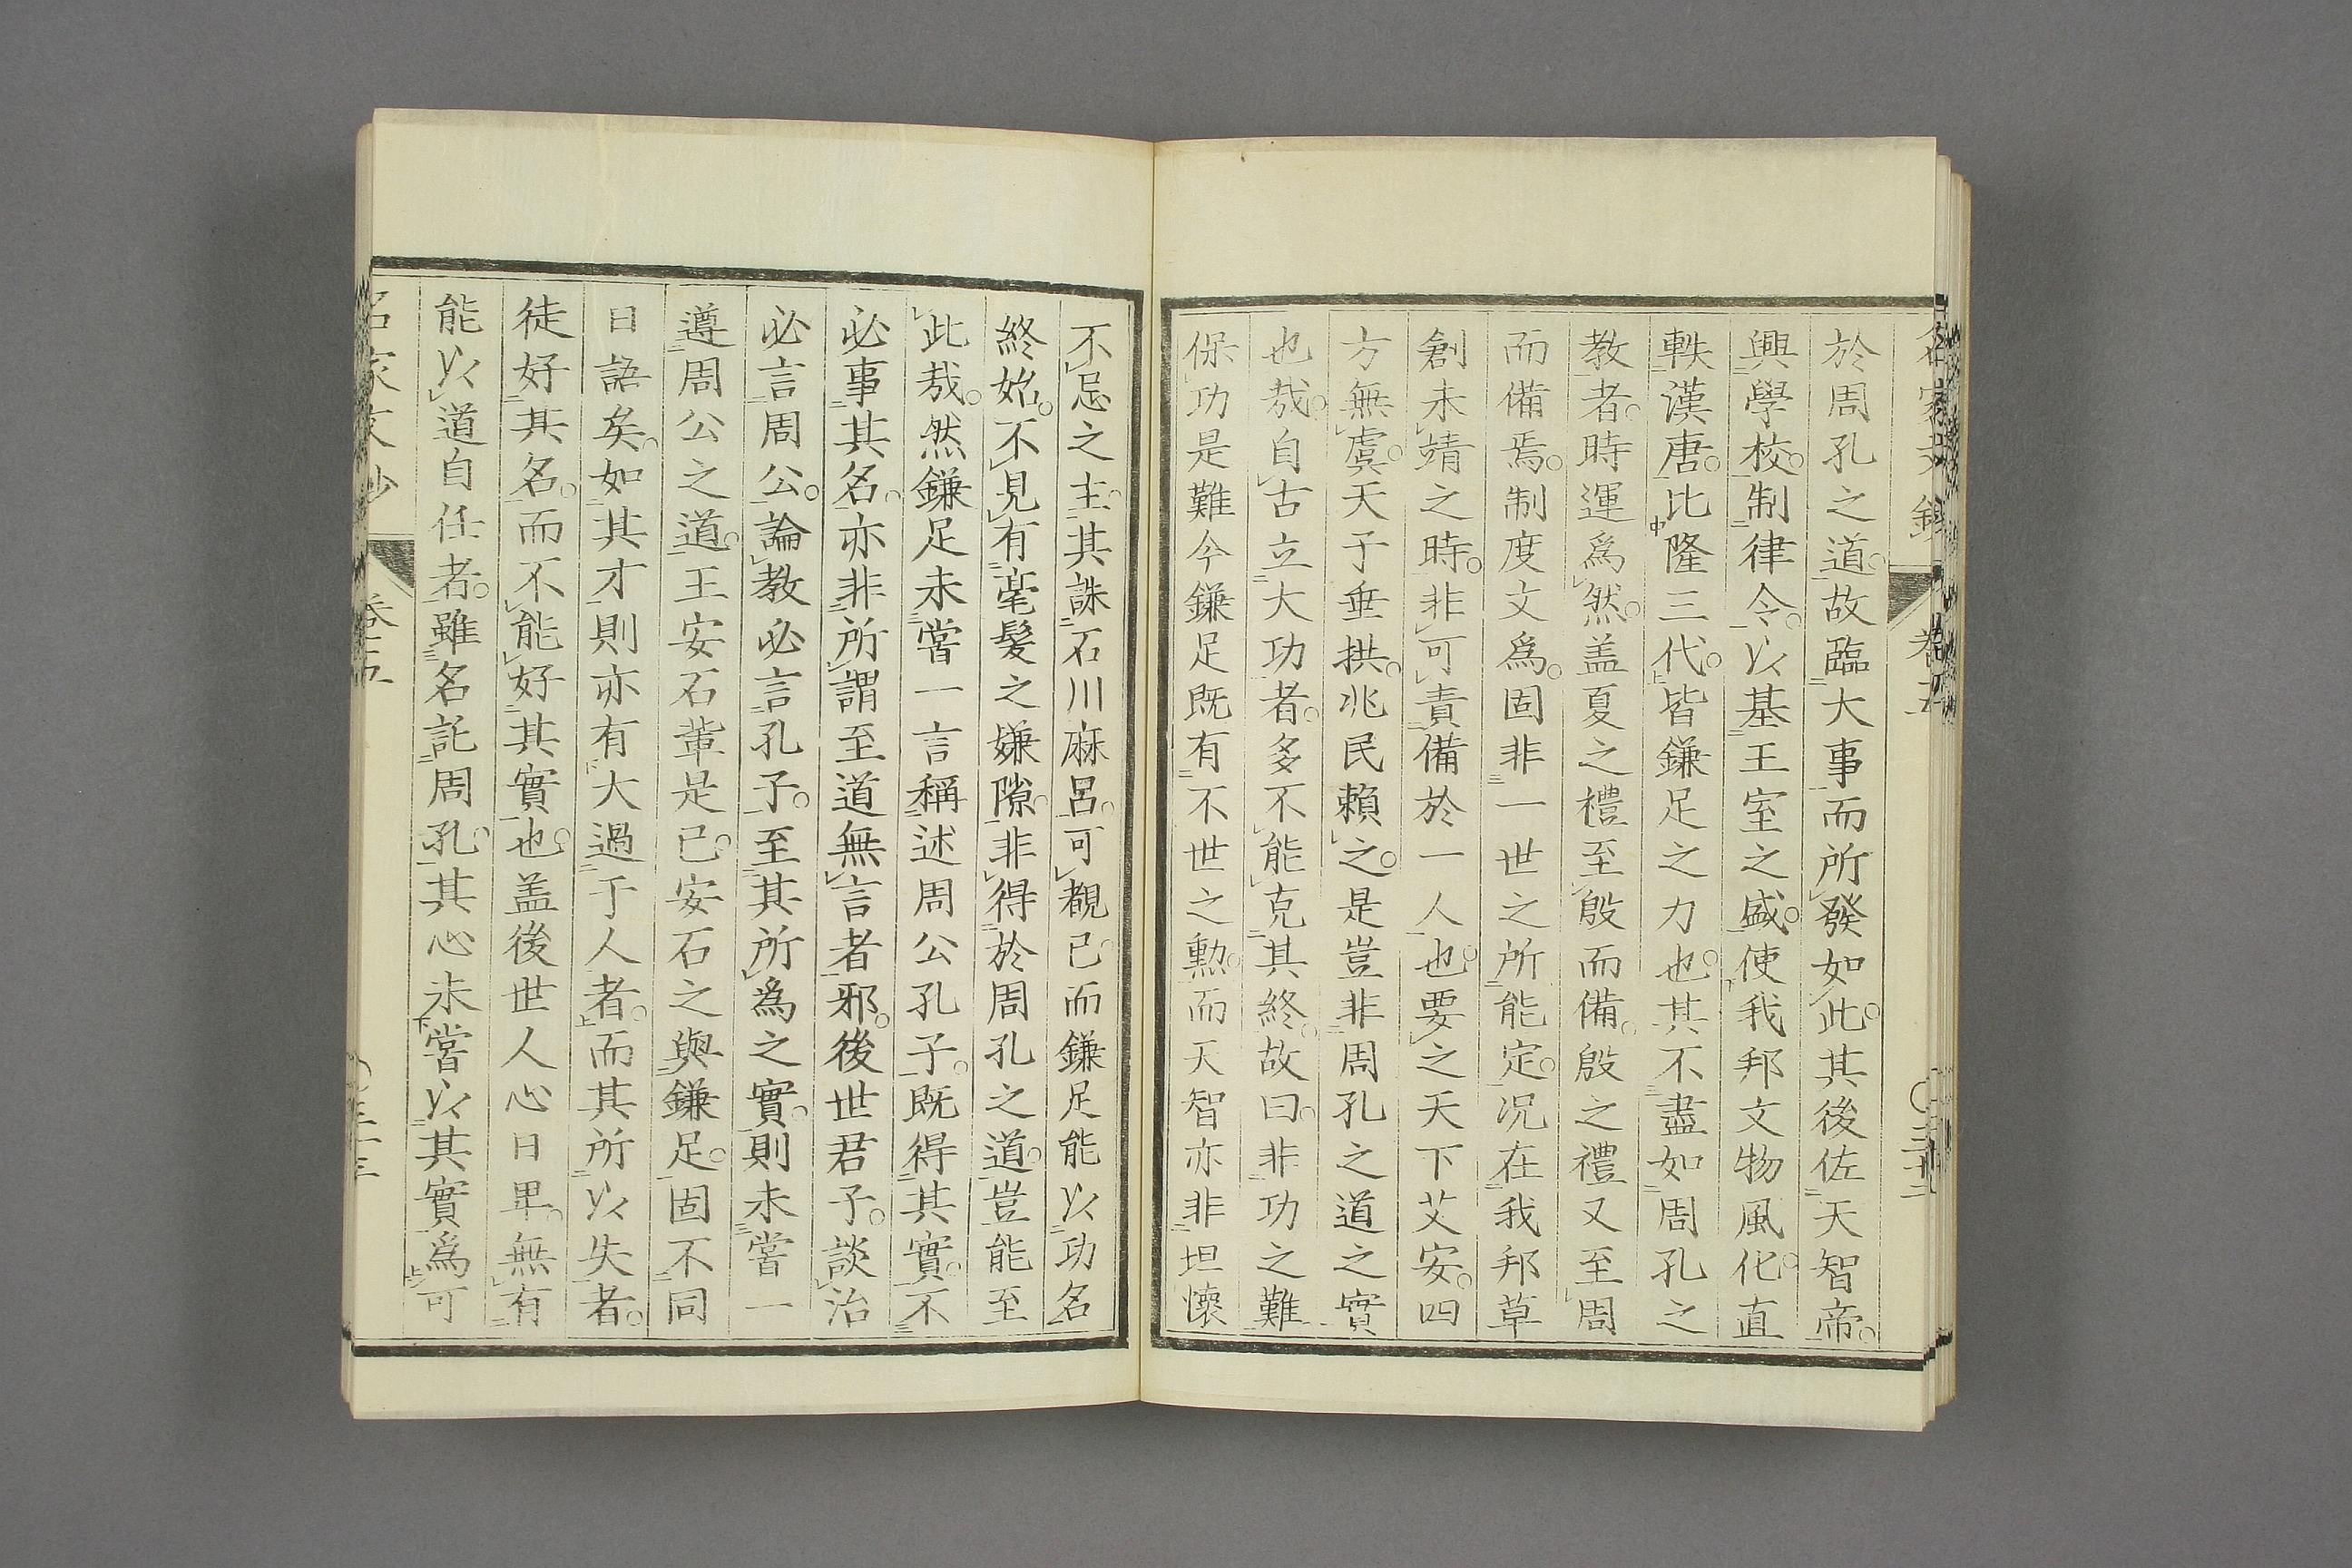 於周孔之道。故臨大事而所發如此。其後佐天智帝。
興學校。制律令。以基王室之盛。使我邦文物風化。直
軼漢唐。比隆三代。皆鎌足之力也。其不盡如周孔之
教者。時運爲然。盖夏之禮至殷而備。殷之禮又至周
而備焉。制度文爲。固非一世之所能定。况在我邦草
創未靖之時。非可責備於一人也。要之天下艾安。四
方無虞。天子垂拱。兆民賴之。是豈非周孔之道之實
也哉。自古立大功者。多不能克其終。故曰。非功之難
保功是難今鎌足既有不世之勲。而天智亦非坦懷
不忌之主。其誅石川麻呂。可覩已。而鎌足能以功名
終始。不見有毫髮之嫌隙。非得於周孔之道。豈能至
此哉。然鎌足未嘗一言稱述周公孔子。既得其實。不
必事其名。亦非所謂至道無言者邪。後世君子。談治
必言周公。論教必言孔子。至其所爲之實。則未嘗一
遵周公之道。王安石輩是已。安石之與鎌足。固不同
日語矣。如其才則亦有大過于人者。而其所以失者。
徒好其名。而不能好其實也。盖後世人心日卑。無有
能以道自任者。雖名託周孔。其心未嘗以其實爲可